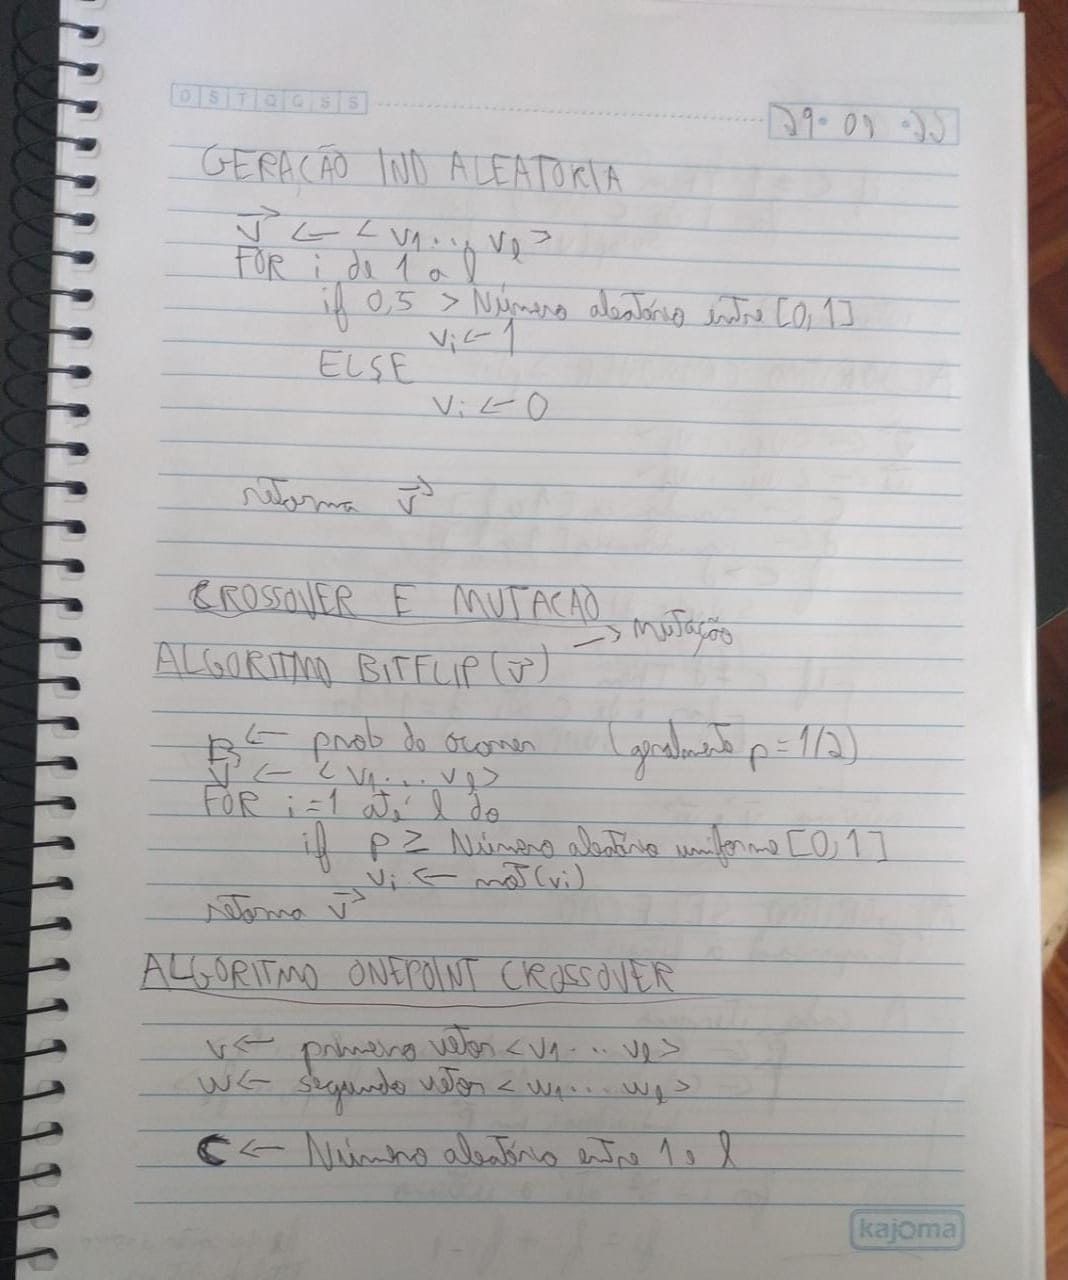 D S T Q Q S S
29 · 09 · 25
GERAÇÃO IND ALEATORIA
v⃗ ← < v1 . . , vl >
FOR i de 1 a l
if 0,5 > Número aleatório entre [0,1]
vi ← 1
ELSE
vi ← 0
retorna v⃗
CROSSOVER E MUTACAO
→ mutação
ALGORITMO BITFLIP (v⃗)
P ← prob de ocorrer (geralmente p = 1/2)
v⃗ ← < v1 . . . vl >
FOR i = 1 até l do
if p ≥ Número aleatório uniforme [0,1]
vi ← not(vi)
retorna v⃗
ALGORITMO ONEPOINT CROSSOVER
v ← primeiro vetor < v1 . . . vl >
w ← segundo vetor < w1 . . . wl >
C ← Número aleatório entre 1 e l
kajoma